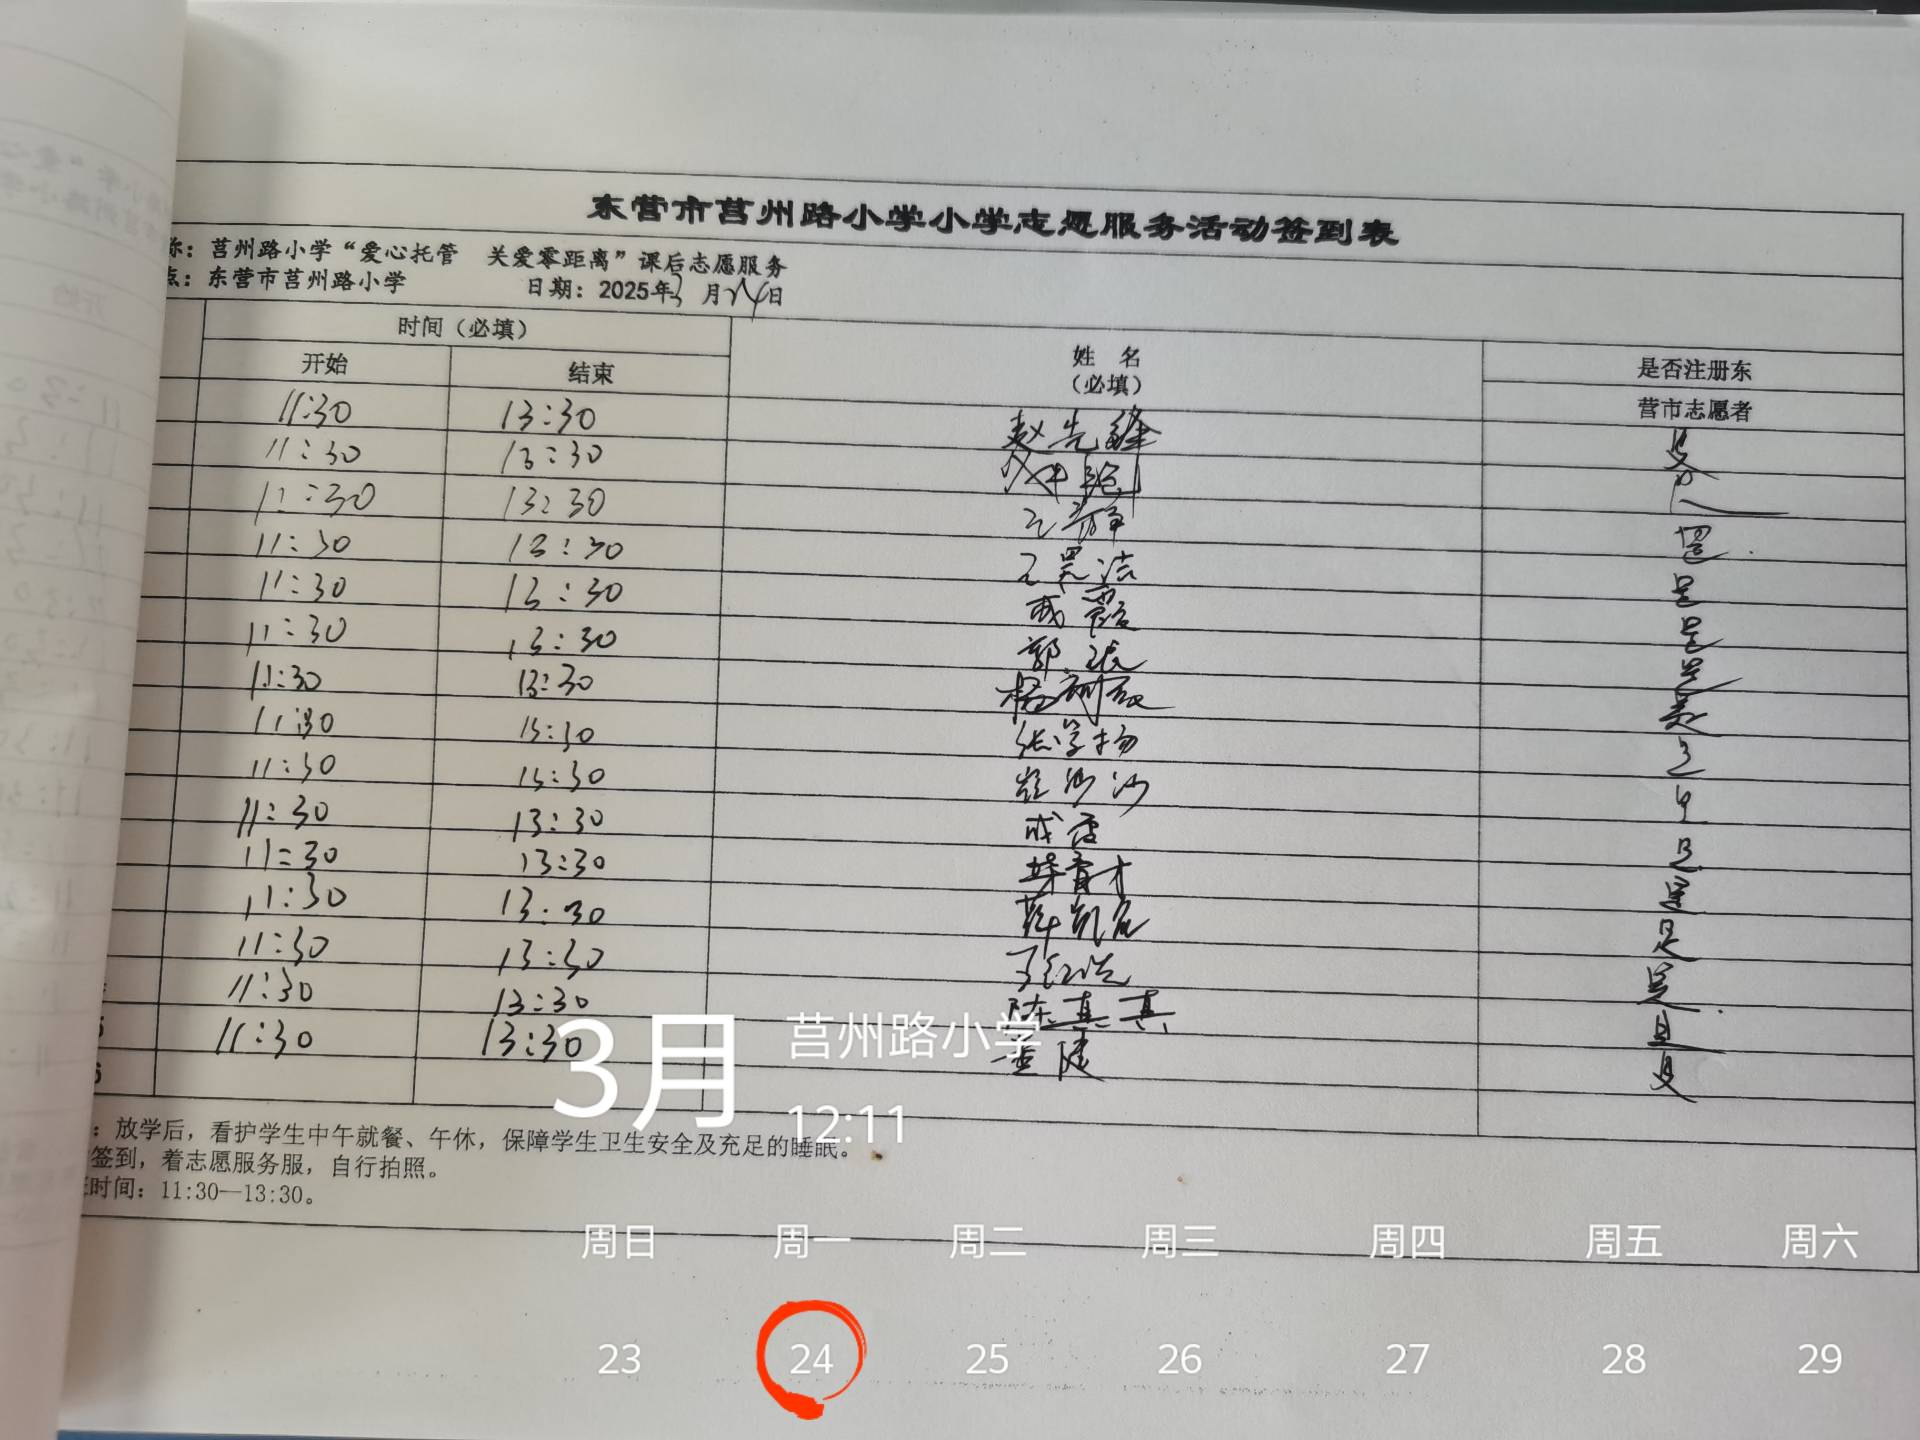 东营市莒州路小学小学志愿服务活动签到表
称：莒州路小学“爱心托管 关爱零距离”课后志愿服务
点：东营市莒州路小学 日期：2025年3月24日
时间（必填）
开始 结束
姓 名
（必填）
是否注册东
营市志愿者
11:30 13:30 赵先锋 是
11:30 13:30
11:30 13:30 王静
11:30 13:30 王昊洁 是
11:30 13:30 成霞 是
11:30 13:30 郭振 是
11:30 13:30 杨
11:30 13:30 张学扬
11:30 13:30 崔沙沙
11:30 13:30 成霞 是
11:30 13:30 育才 是
11:30 13:30 薛凯 是
11:30 13:30 是
11:30 13:30 陈真真 是
11:30 13:30 董健 是
6
：放学后，看护学生中午就餐、午休，保障学生卫生安全及充足的睡眠。
签到，着志愿服务服，自行拍照。
时间：11:30—13:30。
3月
莒州路小学
12:11
周日 周一 周二 周三 周四 周五 周六
23 24 25 26 27 28 29